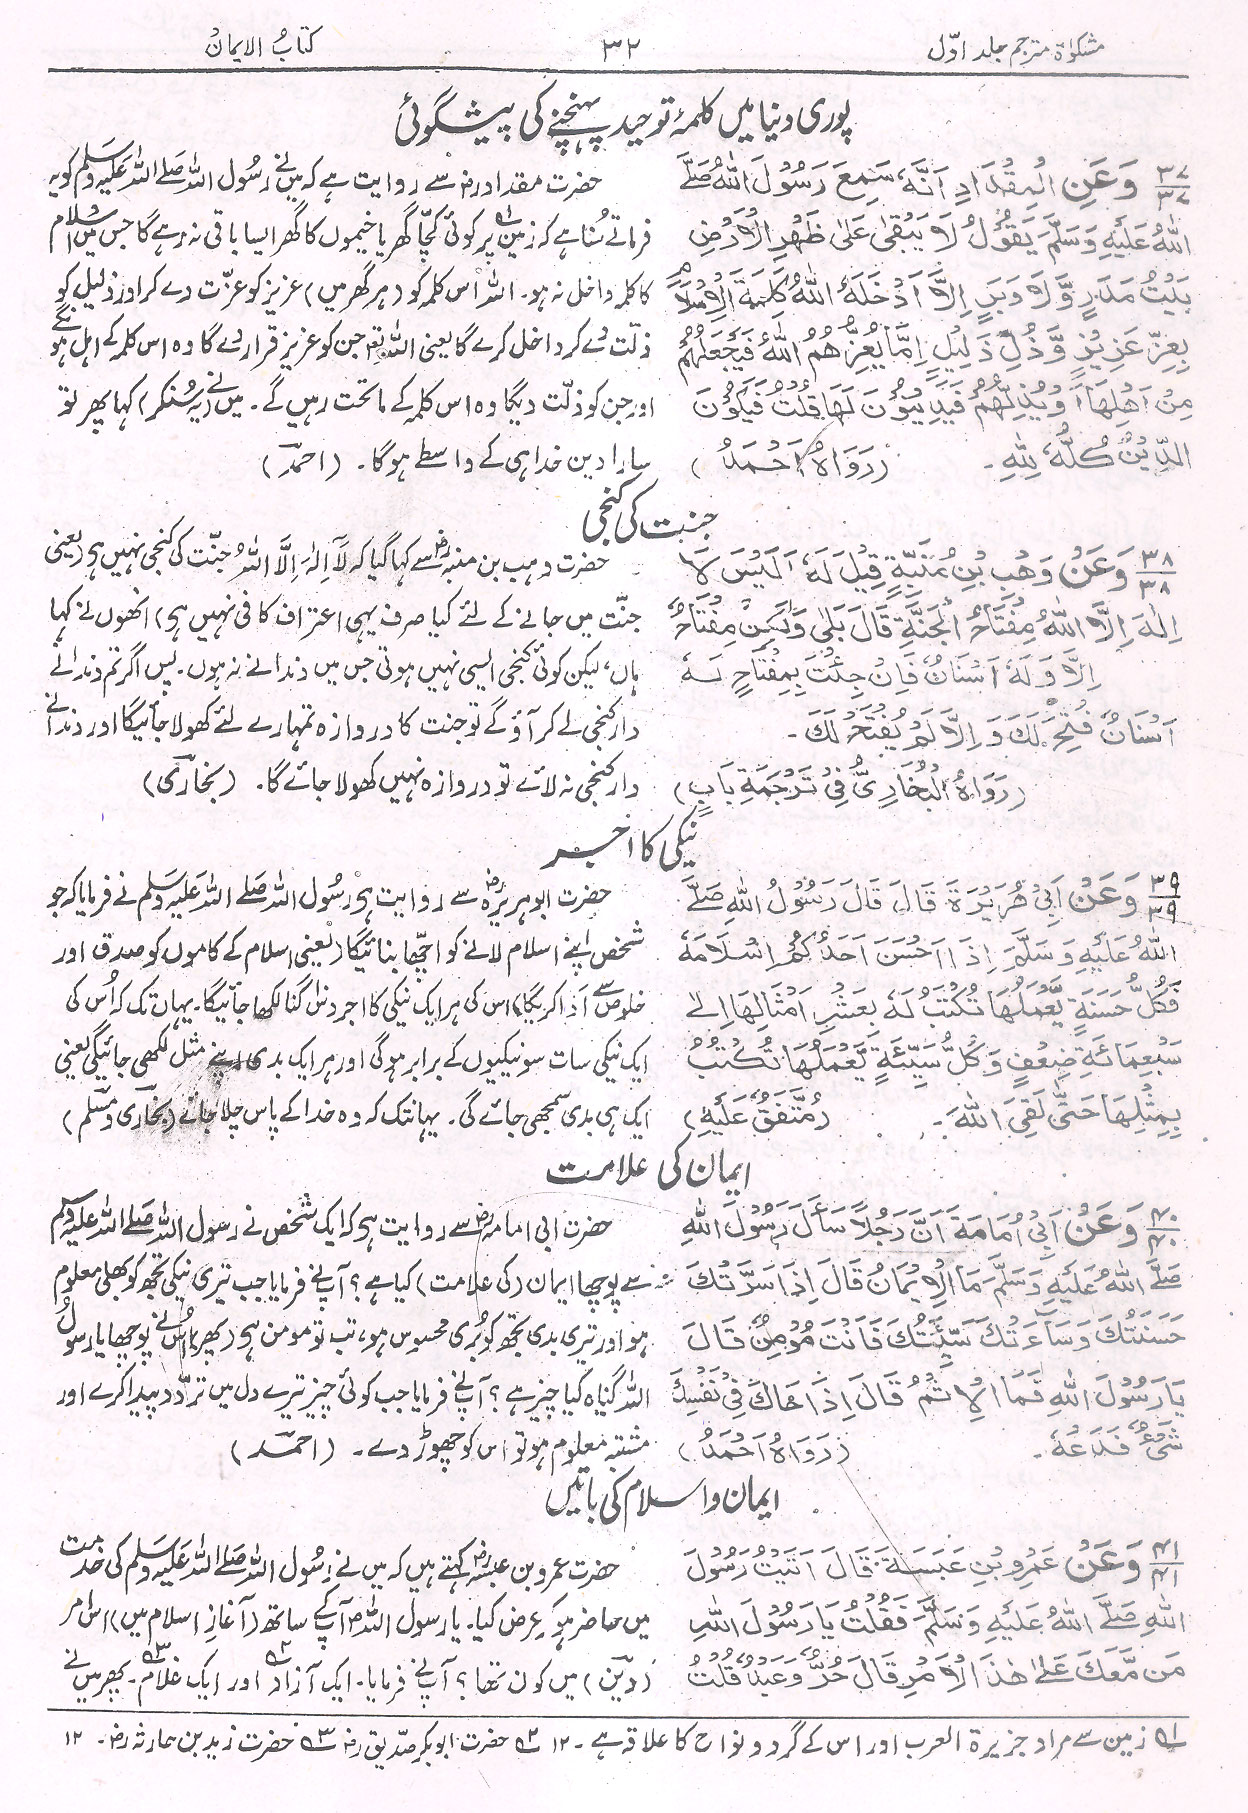 مشکوٰۃ مترجم جلد اوّل
۳۲
کتابُ الایمان
پوری دنیا میں کلمۂ توحید پہنچنے کی پیشگوئی
۳۷/۳۷ وَعَنِ الْمِقْدَادِ اَنَّهٗ سَمِعَ رَسُوْلَ اللّٰهِ صَلَّے
اللّٰهُ عَلَيْهِ وَسَلَّمَ يَقُوْلُ لَا يَبْقٰی عَلٰی ظَهْرِ الْاَرْضِ
بَيْتُ مَدَرٍ وَّلَا وَبَرٍ اِلَّا اَدْخَلَهُ اللّٰهُ كَلِمَةَ الْاِسْلَامِ
بِعِزِّ عَزِيْزٍ وَّذُلِّ ذَلِيْلٍ اِمَّا يُعِزُّهُمُ اللّٰهُ فَيَجْعَلُهُمْ
مِنْ اَهْلِهَا اَوْ يُذِلُّهُمْ فَيَدِيْنُوْنَ لَهَا قُلْتُ فَيَكُوْنَ
الدِّيْنُ كُلُّهٗ لِلّٰهِ۔ (رَوَاهُ اَحْمَدُ)
حضرت مقدادرضؓ سے روایت ہے کہ میں نے رسُول اللہ صَلے اللہ عَلیہ وسَلم کو یہ
فرماتے سُنا ہے کہ زمین ۱؎ پر کوئی کچّا گھر یا خیموں کا گھر ایسا باقی نہ رہے گا جس میں اسلام
کا کلمہ داخل نہ ہو۔ اللہ اس کلمہ کو (ہر گھر میں) عزیز کو عزّت دے کر اور ذلیل کو
ذلّت دے کر داخل کرے گا یعنی اللہ تعہ جن کو عزیز قرار دے گا وہ اس کلمہ کے اہل ہونگے
اور جن کو ذلّت دیگا وہ اس کلمہ کے ماتحت رہیں گے۔ میں نے (یہ سُنکر) کہا پھر تو
سارا دین خدا ہی کے واسطے ہوگا۔ (احمدؒ)
جنت کی کنجی
۳۸/۳۸ وَعَنْ وَهْبِ بْنِ مُنَبِّهٍ قِيْلَ لَهٗ اَلَيْسَ لَا
اِلٰهَ اِلَّا اللّٰهُ مِفْتَاحُ الْجَنَّةِ قَالَ بَلٰی وَلٰكِنْ مِفْتَاحٌ
اِلَّا وَلَهٗ اَسْنَانٌ فَاِنْ جِئْتَ بِمِفْتَاحٍ لَهٗ
اَسْنَانٌ فُتِحَ لَكَ وَاِلَّا لَمْ يُفْتَحْ لَكَ۔
(رَوَاهُ الْبُخَارِیُّ فِیْ تَرْجَمَةِ بَابٍ)
حضرت وہب بن منبہ رضؓ سے کہا گیا کہ لَا اِلٰہَ اِلَّا اللہُ جنّت کی کنجی نہیں ہی (یعنی
جنّت میں جانے کے لئے کیا صرف یہی اعتراف کافی نہیں ہی) انھوں نے کہا
ہاں، لیکن کوئی کنجی ایسی نہیں ہوتی جس میں دندانے نہ ہوں۔ پس اگر تم دندانے
دار کنجی لے کر آؤ گے تو جنت کا دروازہ تمہارے لئے کھولا جائیگا اور دندانے
دار کنجی نہ لائے تو دروازہ نہیں کھولا جائے گا۔ (بخاریؒ)
نیکی کا اجر
۳۹/۳۹ وَعَنْ اَبِیْ هُرَيْرَةَ قَالَ قَالَ رَسُوْلُ اللّٰهِ صَلَّے
اللّٰهُ عَلَيْهِ وَسَلَّمَ اِذَا اَحْسَنَ اَحَدُكُمْ اِسْلَامَهٗ
فَكُلُّ حَسَنَةٍ يَّعْمَلُهَا تُكْتَبُ لَهٗ بِعَشْرِ اَمْثَالِهَا اِلٰی
سَبْعِمِائَةِ ضِعْفٍ وَّكُلُّ سَيِّئَةٍ يَّعْمَلُهَا تُكْتَبُ
بِمِثْلِهَا حَتّٰی لَقِیَ اللّٰهَ۔ (مُتَّفَقٌ عَلَيْهِ)
حضرت ابوہریرہ رضؓ سے روایت ہی رسُول اللہ صَلے اللہ عَلیہ وسَلم نے فرمایا کہ جو
شخص اپنے اسلام لانے کو اچّھا بنائیگا (یعنی اسلام کے کاموں کو صدق اور
خلوص سے اَدا کریگا) اس کی ہر ایک نیکی کا اجر دس گنا لکھا جائیگا۔ یہاں تک کہ اُس کی
ایک نیکی سات سو نیکیوں کے برابر ہوگی اور ہر ایک بدی اپنے مثل لکھی جائیگی یعنی
ایک ہی بدی سمجھی جائے گی۔ یہانتک کہ وہ خدا کے پاس چلا جائے (بخاریؒ و مسلمؒ)
ایمان کی علامت
۴۰/۴۰ وَعَنْ اَبِیْ اُمَامَةَ اَنَّ رَجُلًا سَاَلَ رَسُوْلَ اللّٰهِ
صَلَّے اللّٰهُ عَلَيْهِ وَسَلَّمَ مَا الْاِيْمَانُ قَالَ اِذَا سَرَّتْكَ
حَسَنَتُكَ وَسَآءَتْكَ سَيِّئَتُكَ فَاَنْتَ مُؤْمِنٌ قَالَ
يَا رَسُوْلَ اللّٰهِ فَمَا الْاِثْمُ قَالَ اِذَا حَاكَ فِیْ نَفْسِكَ
شَیْءٌ فَدَعْهُ۔ (رَوَاهُ اَحْمَدُ)
حضرت ابی امامہ رضؓ سے روایت ہی کہ ایک شخص نے رسول اللہ صَلے اللہ علیہ وسلم
سے پوچھا ایمان (کی علامت) کیا ہے؟ آپ نے فرمایا جب تیری نیکی تجھ کو بھلی معلوم
ہو اور تیری بدی تجھ کو بُری محسوس ہو، تب تو مومن ہی (پھر) اُس نے پوچھا یا رسُولُ
اللہ گناہ کیا چیز ہے؟ آپ نے فرمایا جب کوئی چیز تیرے دل میں تردّد پیدا کرے اور
مشتبہ معلوم ہو تو اس کو چھوڑ دے۔ (احمدؒ)
ایمان و اسلام کی باتیں
۴۱/۴۱ وَعَنْ عَمْرِو بْنِ عَبَسَةَ قَالَ اَتَيْتُ رَسُوْلَ
اللّٰهِ صَلَّے اللّٰهُ عَلَيْهِ وَسَلَّمَ فَقُلْتُ يَا رَسُوْلَ اللّٰهِ
مَنْ مَّعَكَ عَلٰی هٰذَا الْاَمْرِ قَالَ حُرٌّ وَّعَبْدٌ قُلْتُ
حضرت عمرو بن عبسہ رضؓ کہتے ہیں کہ میں نے رسُول اللہ صَلے اللہ عَلیہ وسَلم کی خدمت
میں حاضر ہو کر عرض کیا۔ یا رسول اللہ آپ کے ساتھ (آغازِ اسلام میں) اس امر
(دین) میں کون تھا؟ آپ نے فرمایا۔ ایک آزاد ۲؎ اور ایک غلام ۳؎۔ پھر میں نے
۱؎ زمین سے مراد جزیرۃ العرب اور اس کے گرد و نواح کا علاقہ ہے۔ ۱۲ ۲؎ حضرت ابوبکر صدیق رضؓ ۳؎ حضرت زید بن حارثہ رضؓ۔ ۱۲